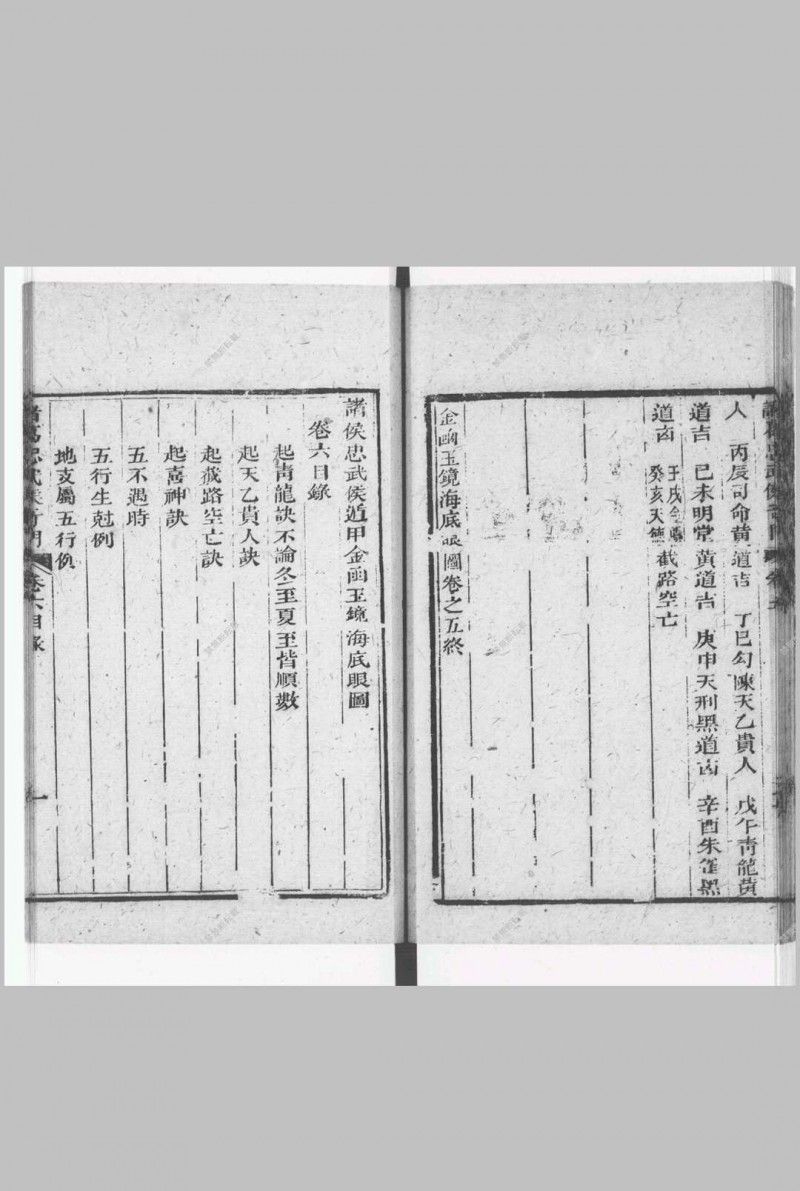 人　丙辰司命黄道吉　丁巳勾陳天乙貴人　戊午青龍黃
道吉　己未明堂黃道吉　庚申天刑黑道凶　辛酉朱雀黑
道凶　壬戌金匱
癸亥天德
截路空亡
金函玉鏡海底眼圖卷之五終
諸侯忠武侯遁甲金函玉鏡海底眼圖
卷六目錄
起靑龍訣不論冬至夏至皆順數
起天乙貴人訣
起截路空亡訣
起喜神訣
五不遇時
五行生尅例
地支屬五行例
諸葛忠武侯奇門　卷六目錄　一